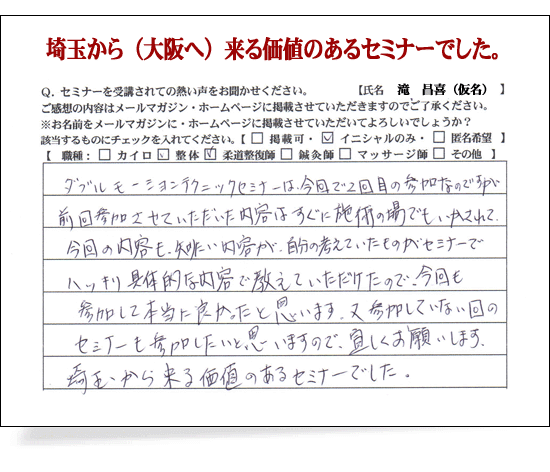 埼玉から（大阪へ）来る価値のあるセミナーでした。
Q. セミナーを受講されての熱い声をお聞かせください。 【氏名 滝 昌喜（仮名） 】
ご感想の内容はメールマガジン・ホームページに掲載させていただきますのでご了承ください。
※お名前をメールマガジンに・ホームページに掲載させていただいてよろしいでしょうか？
該当するものにチェックを入れてください。【 □ 掲載可・ ☑ イニシャルのみ・ □ 匿名希望 】
【 職種： □ カイロ ☑ 整体 ☑ 柔道整復師 □ 鍼灸師 □ マッサージ師 □ その他 】
ダブルモーションテクニックセミナーは、今回で2回目の参加なのですが
前回参加させていただいた内容はすぐに施術の場でもいかされて、
今回の内容も、知りたい内容が、自分の考えていたものがセミナーで
ハッキリ具体的な内容で教えていただけたので、今回も
参加して本当に良かったと思います。又参加していない回の
セミナーも参加したいと思いますので、宜しくお願いします。
埼玉から来る価値のあるセミナーでした。